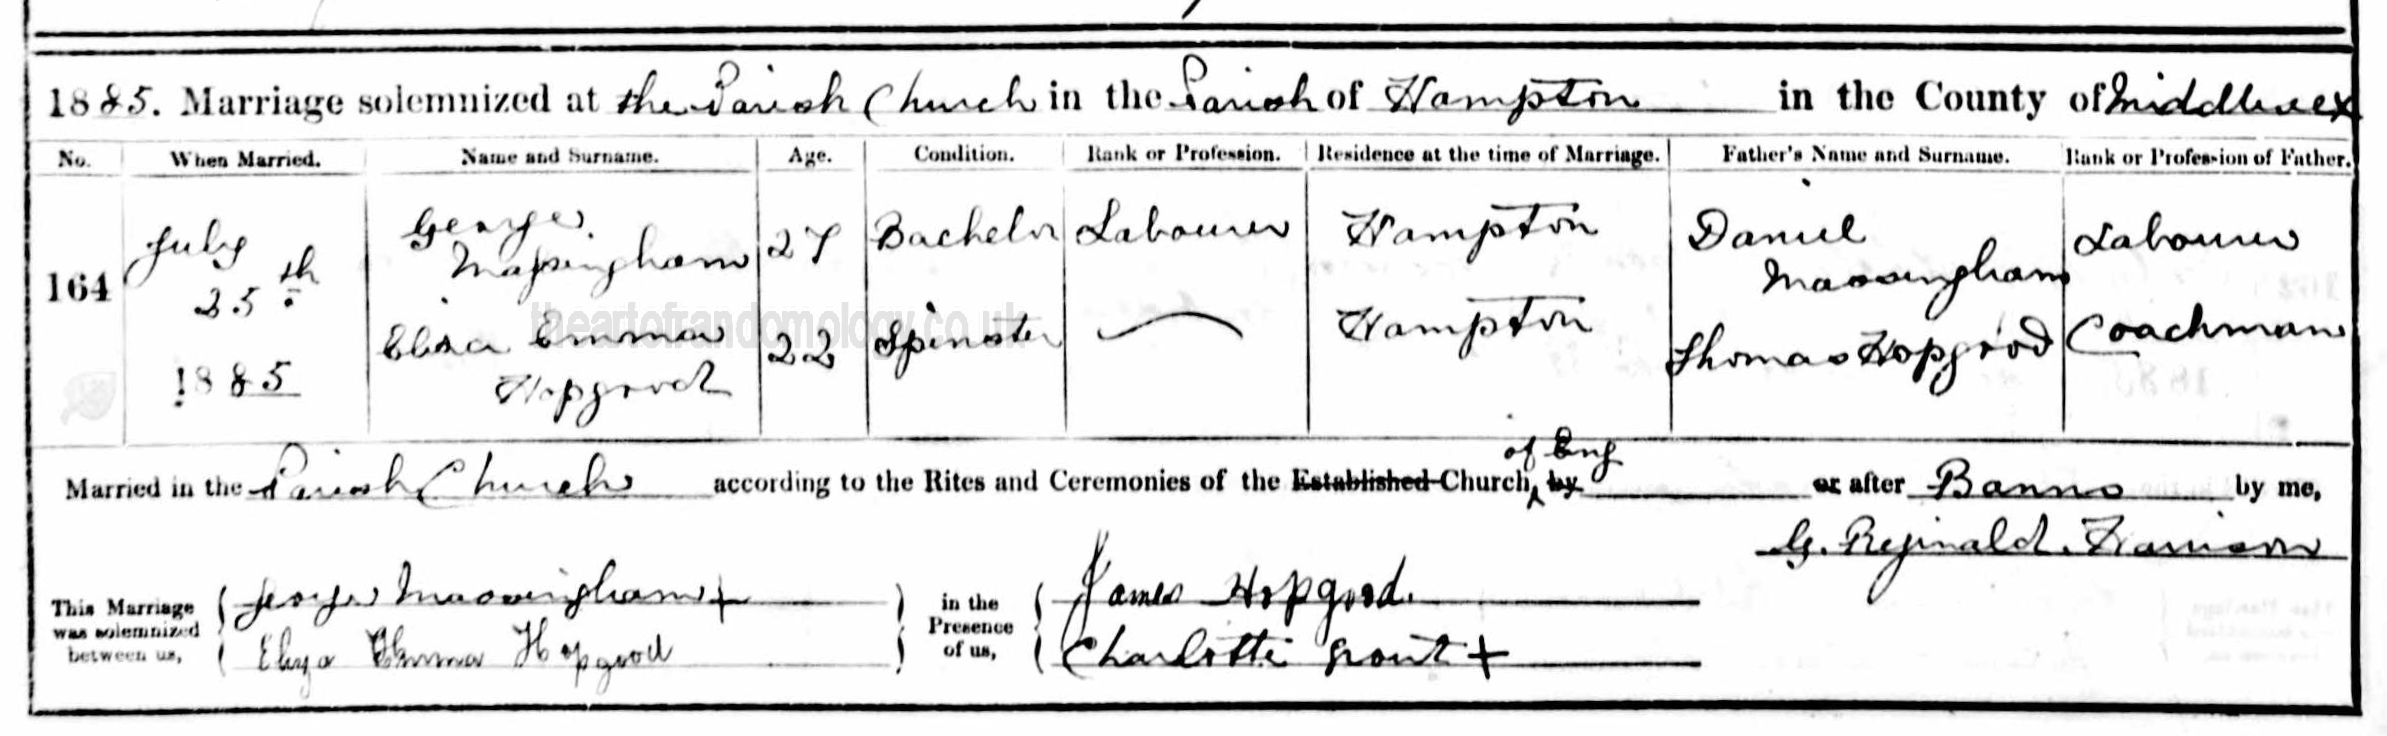 1885. Marriage solemnized at the Parish Church in the Parish of Hampton in the County of Middlesex
No. When Married. Name and Surname. Age. Condition. Rank or Profession. Residence at the time of Marriage. Father's Name and Surname. Rank or Profession of Father.
164
July
25th
1885
George
Massingham
27
Bachelor
Labourer
Hampton
Daniel
Massingham
Labourer
Eliza Emma
Hopgood
22
Spinster
Hampton
Thomas Hopgood
Coachman
theartofrandomology.co.uk
of Eng
Married in the Parish Church according to the Rites and Ceremonies of the Established Church by or after Banns by me,
G. Reginald. Harrison
This Marriage
was solemnized
between us,
George Massingham +
Eliza Emma Hopgood
in the
Presence
of us,
James Hopgood.
Charlotte Grout +